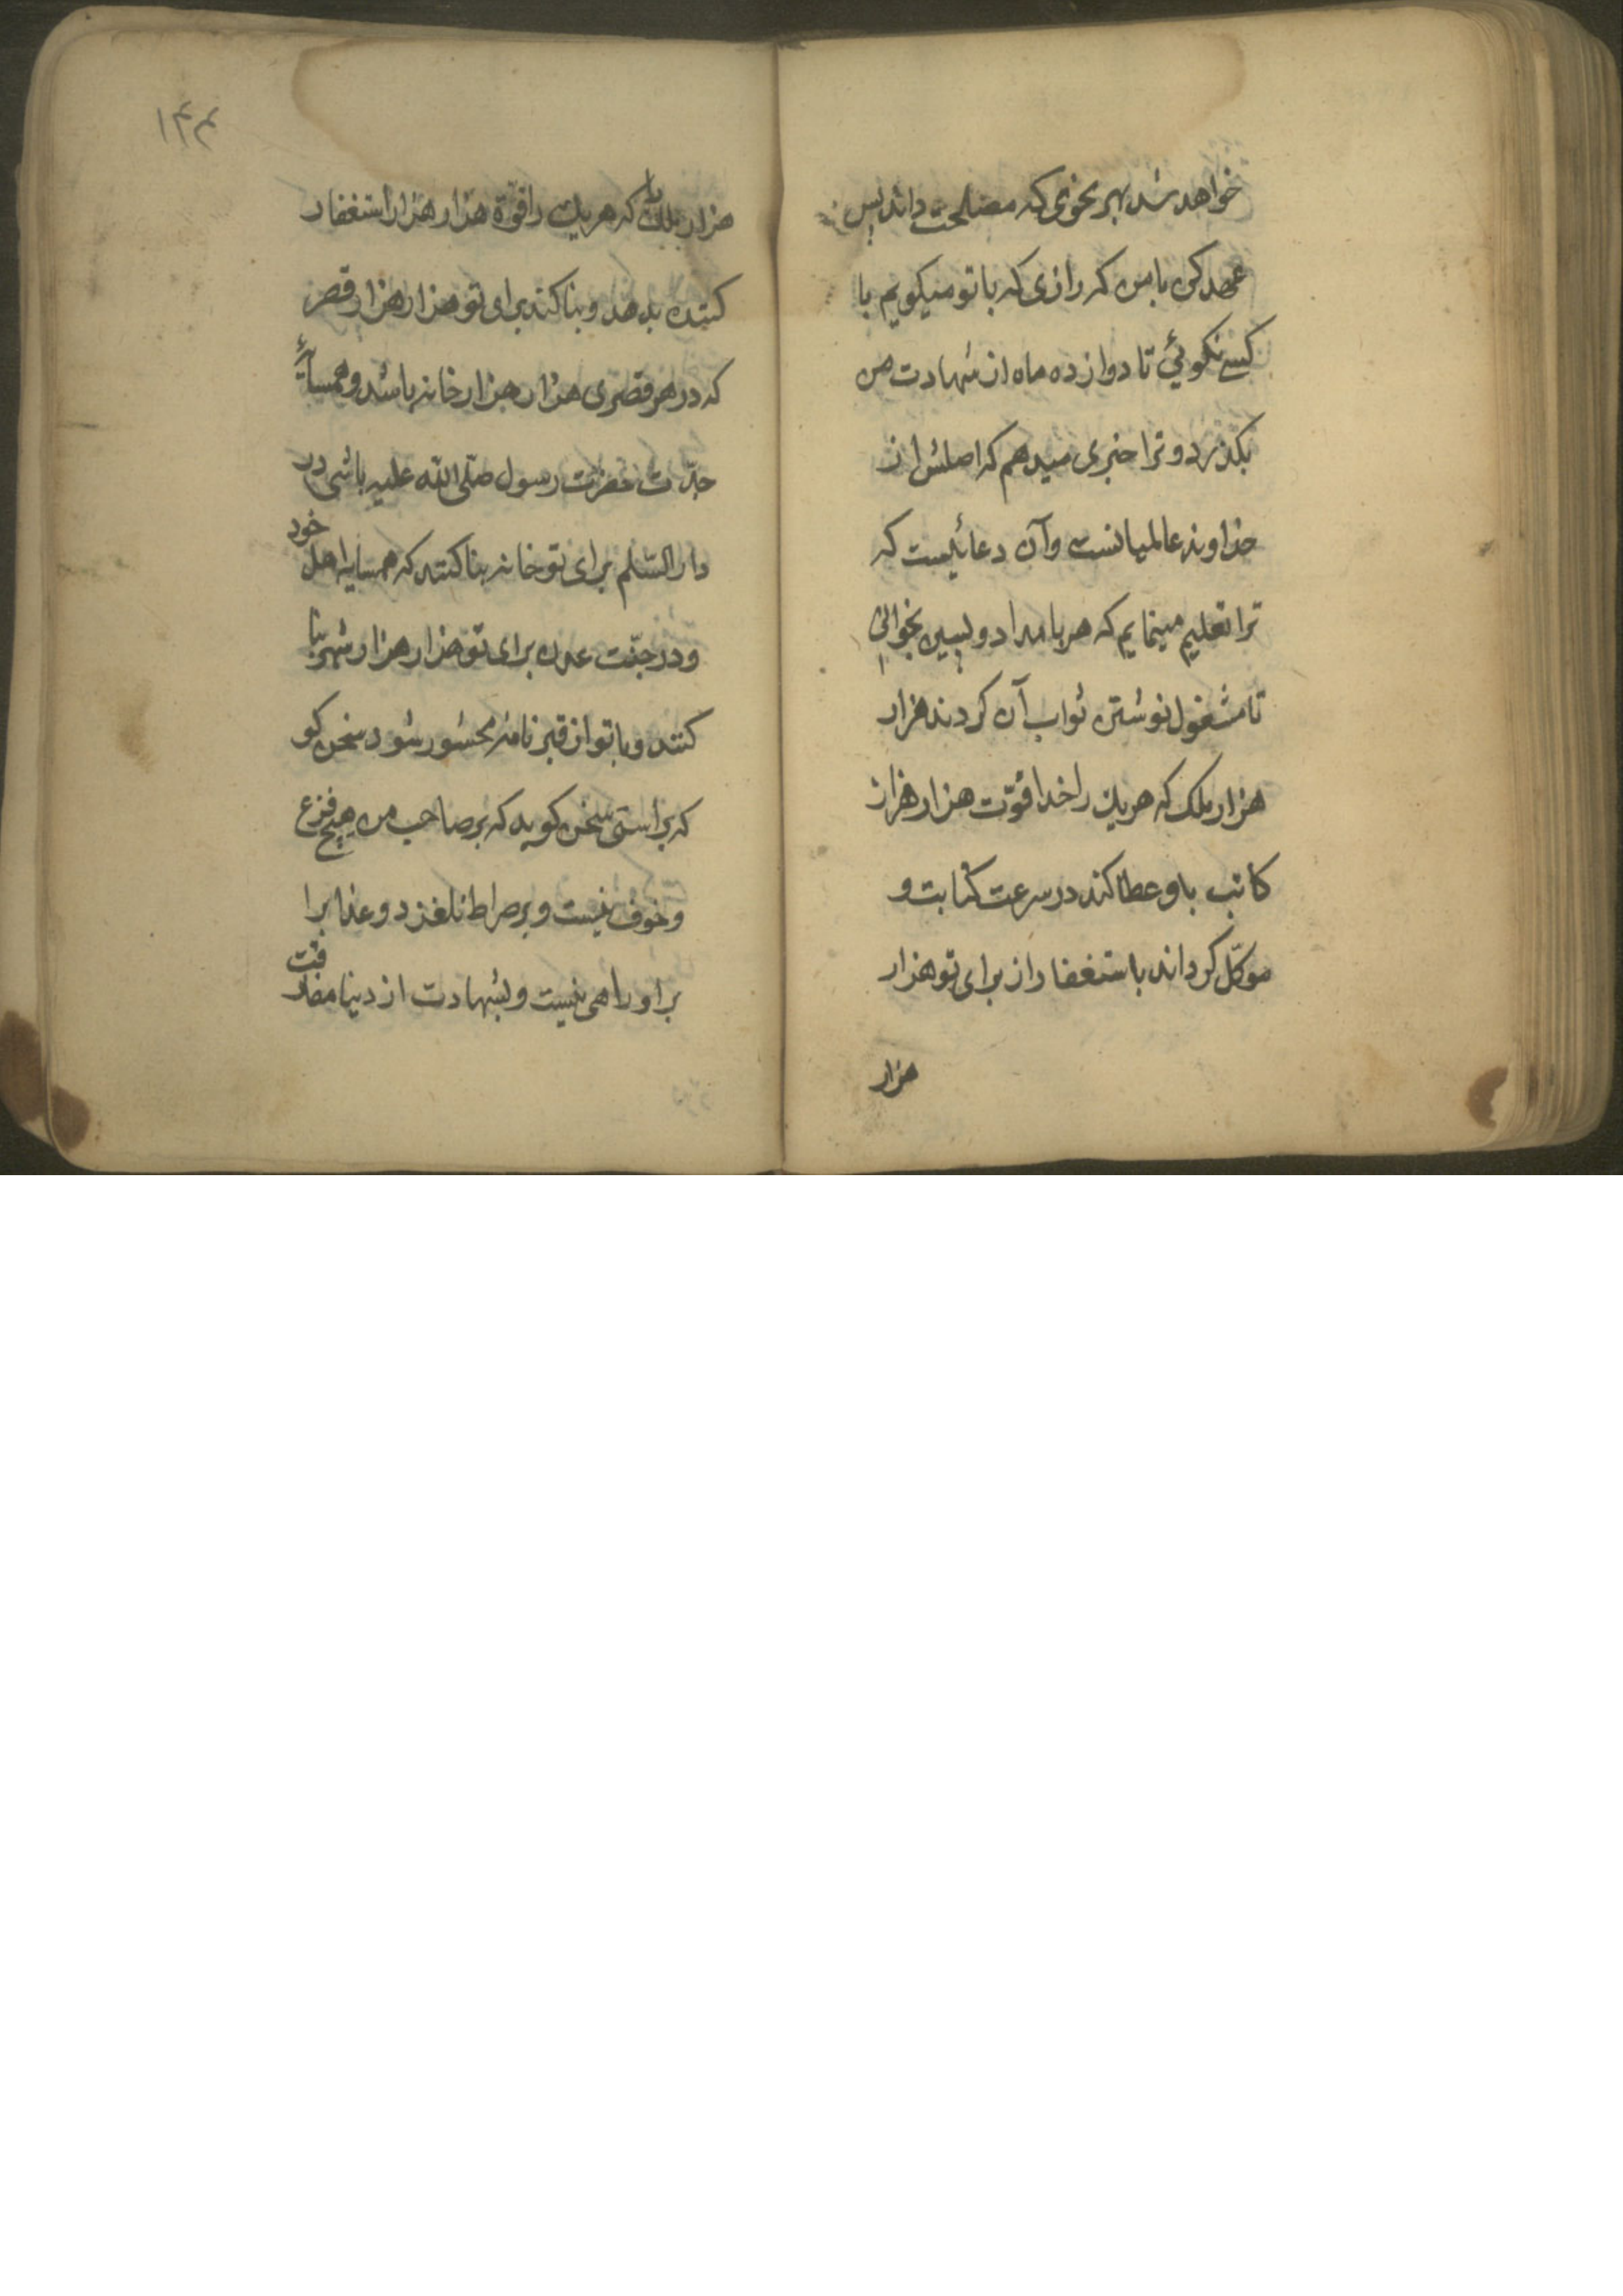 خواهد شد بهر نحوی که مصلحت داند پس
عهد کن با من که رازی که با تو میکویم با
کسی نکوئی تا دوازده ماه از شهادت من
بکذرد و ترا خبری میدهم که اصلش از
خداوند عالمیانست و آن دعائیست که
ترا تعلیم مینمایم که هر بامداد و پسین بخوانی
تا مشغول نوشتن ثواب آن کردند هزار
هزار ملک که هریک را خدا قوّت هزار هزار
کاتب باو عطا کند در سرعت کتابت و
موکّل کرداند باستغفار از برای تو هزار
هزار
۱۴۴
هزار ملک که هریک را قوّة هزار هزار استغفار
کننده بدهد و بنا کند برای تو هزار هزار قصر
که در هر قصری هزار هزار خانه باشد و همسایهٔ
جدّت حضرت رسول صلّی الله علیه باشی در
دار السّلم برای تو خانه بنا کنند که همسایه اهل خود
و در جنّت عدن برای تو هزار هزار شهر بنا
کنند و با تو از قبر نامهٔ محشور شود سخن کو
که براستی سخن کوید که بر صاحب من هیچ فزع
و خوف نیست و بر صراط نلغزد و عذابرا
بر او راهی نیست و بشهادت از دنیا مفارقت